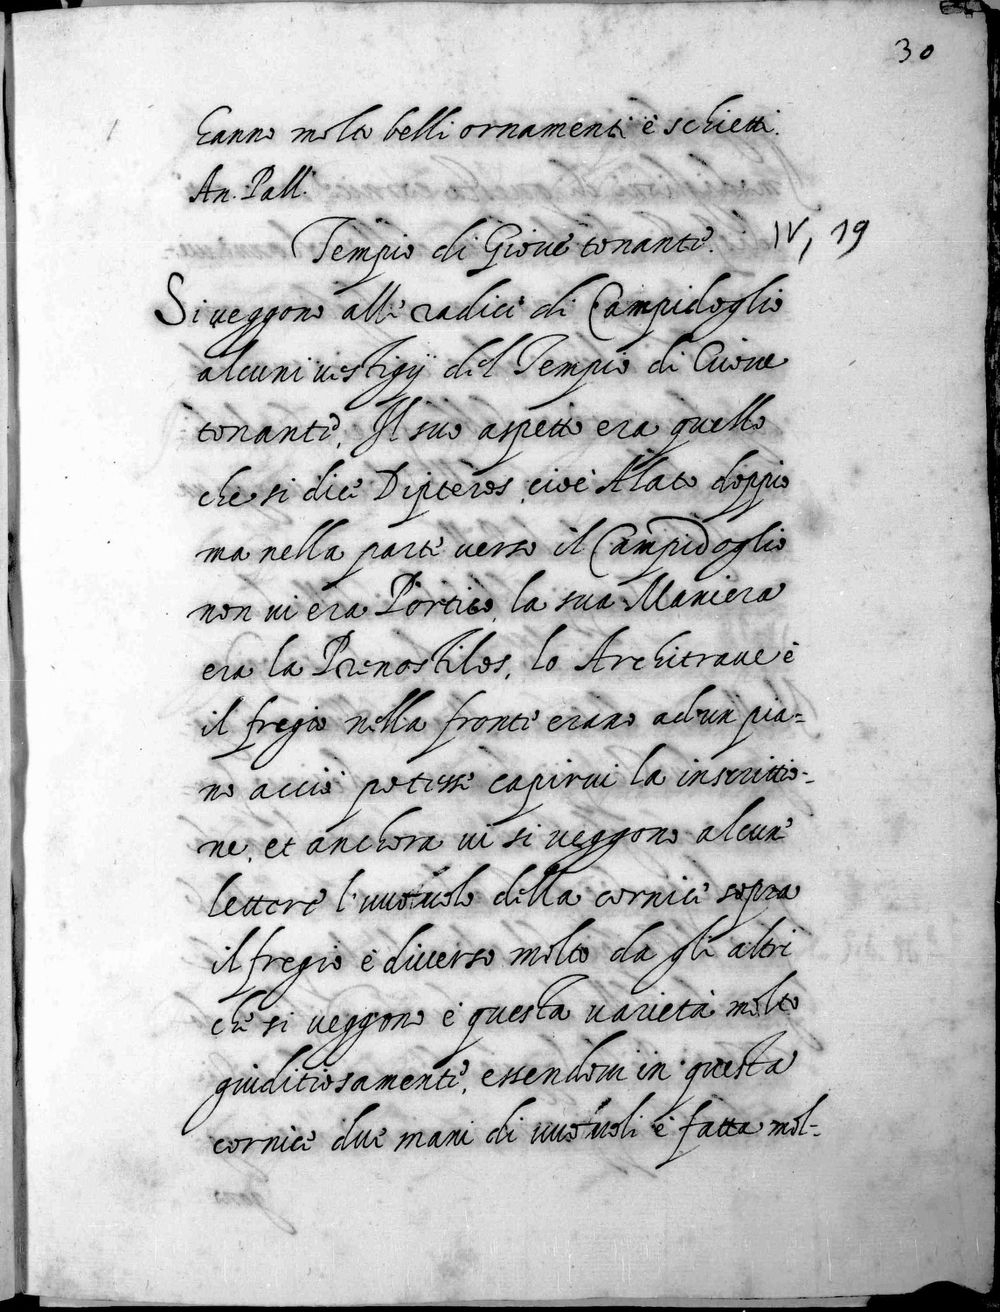 30
hanno molto belli ornamenti è schietti.
An. Pall.
Tempio di Giove tonante. IV, 19
Si veggono alle radici di Campidoglio
alcuni vestigij del Tempio di Giove
tonante, Il suo aspetto era quello
che si dice Dipteros, cioè Alato doppio
ma nella parte verso il Campidoglio
non vi era Portico, la sua Maniera
era la Picnostilos, lo Architrave è
il fregio nella fronte erano ad un pia=
no acciò potesse capirvi la inscritio=
ne, et anchora vi si veggono alcune
lettere l'uuouolo della cornice sopra
il fregio è diverso molto da gli altri
che si veggono è questa varietà molto
giuditiosamente, essendovi in questa
cornice due mani di uuouoli è fatta mol=